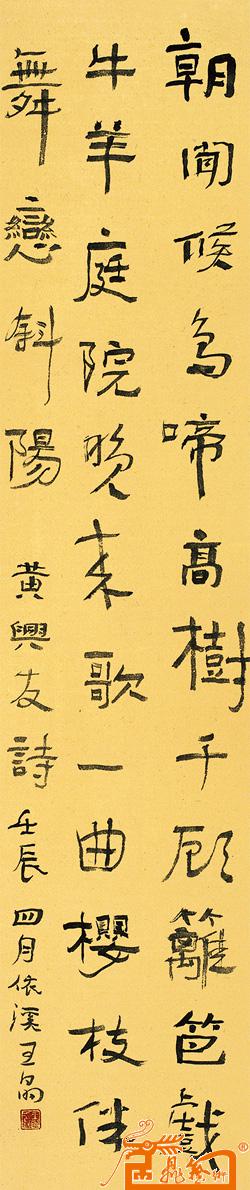 朝聞候鳥啼高樹千顾籬笆戲
牛羊庭院晚来歌一曲櫻枝伴
舞戀斜陽 黄興友詩 壬辰四月依溪王翕